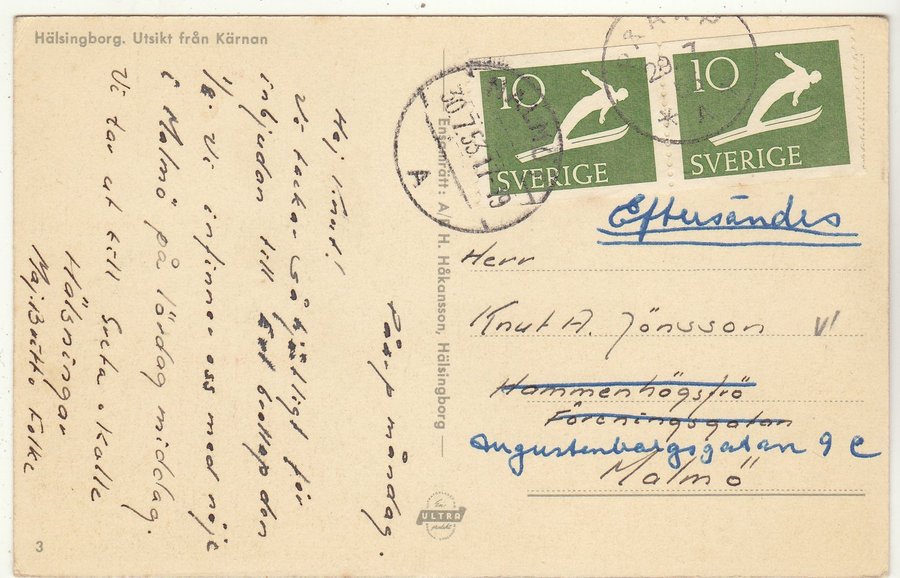 Hälsingborg. Utsikt från Kärnan
Påarp måndag.
Hej Knut!
Vi tackar så hjärtligt för
inbjudan till bröllop den
1/8. Vi infinner oss med nöje
i Malmö på lördag middag.
Vi tar at till Greta o Kalle
Hälsningar
Maj-Britt o Folke
3
Ensamrätt: A/B H. Håkansson, Hälsingborg
En
ULTRA
produkt
10
SVERIGE
10
SVERIGE
MALMÖ
30.7.53.17-19
A
29.7
* A
Eftersändes
Herr
Knut A. Jönsson
Hammenhögsfrö
Föreningsgatan
Augustenborgsgatan 9 C
Malmö